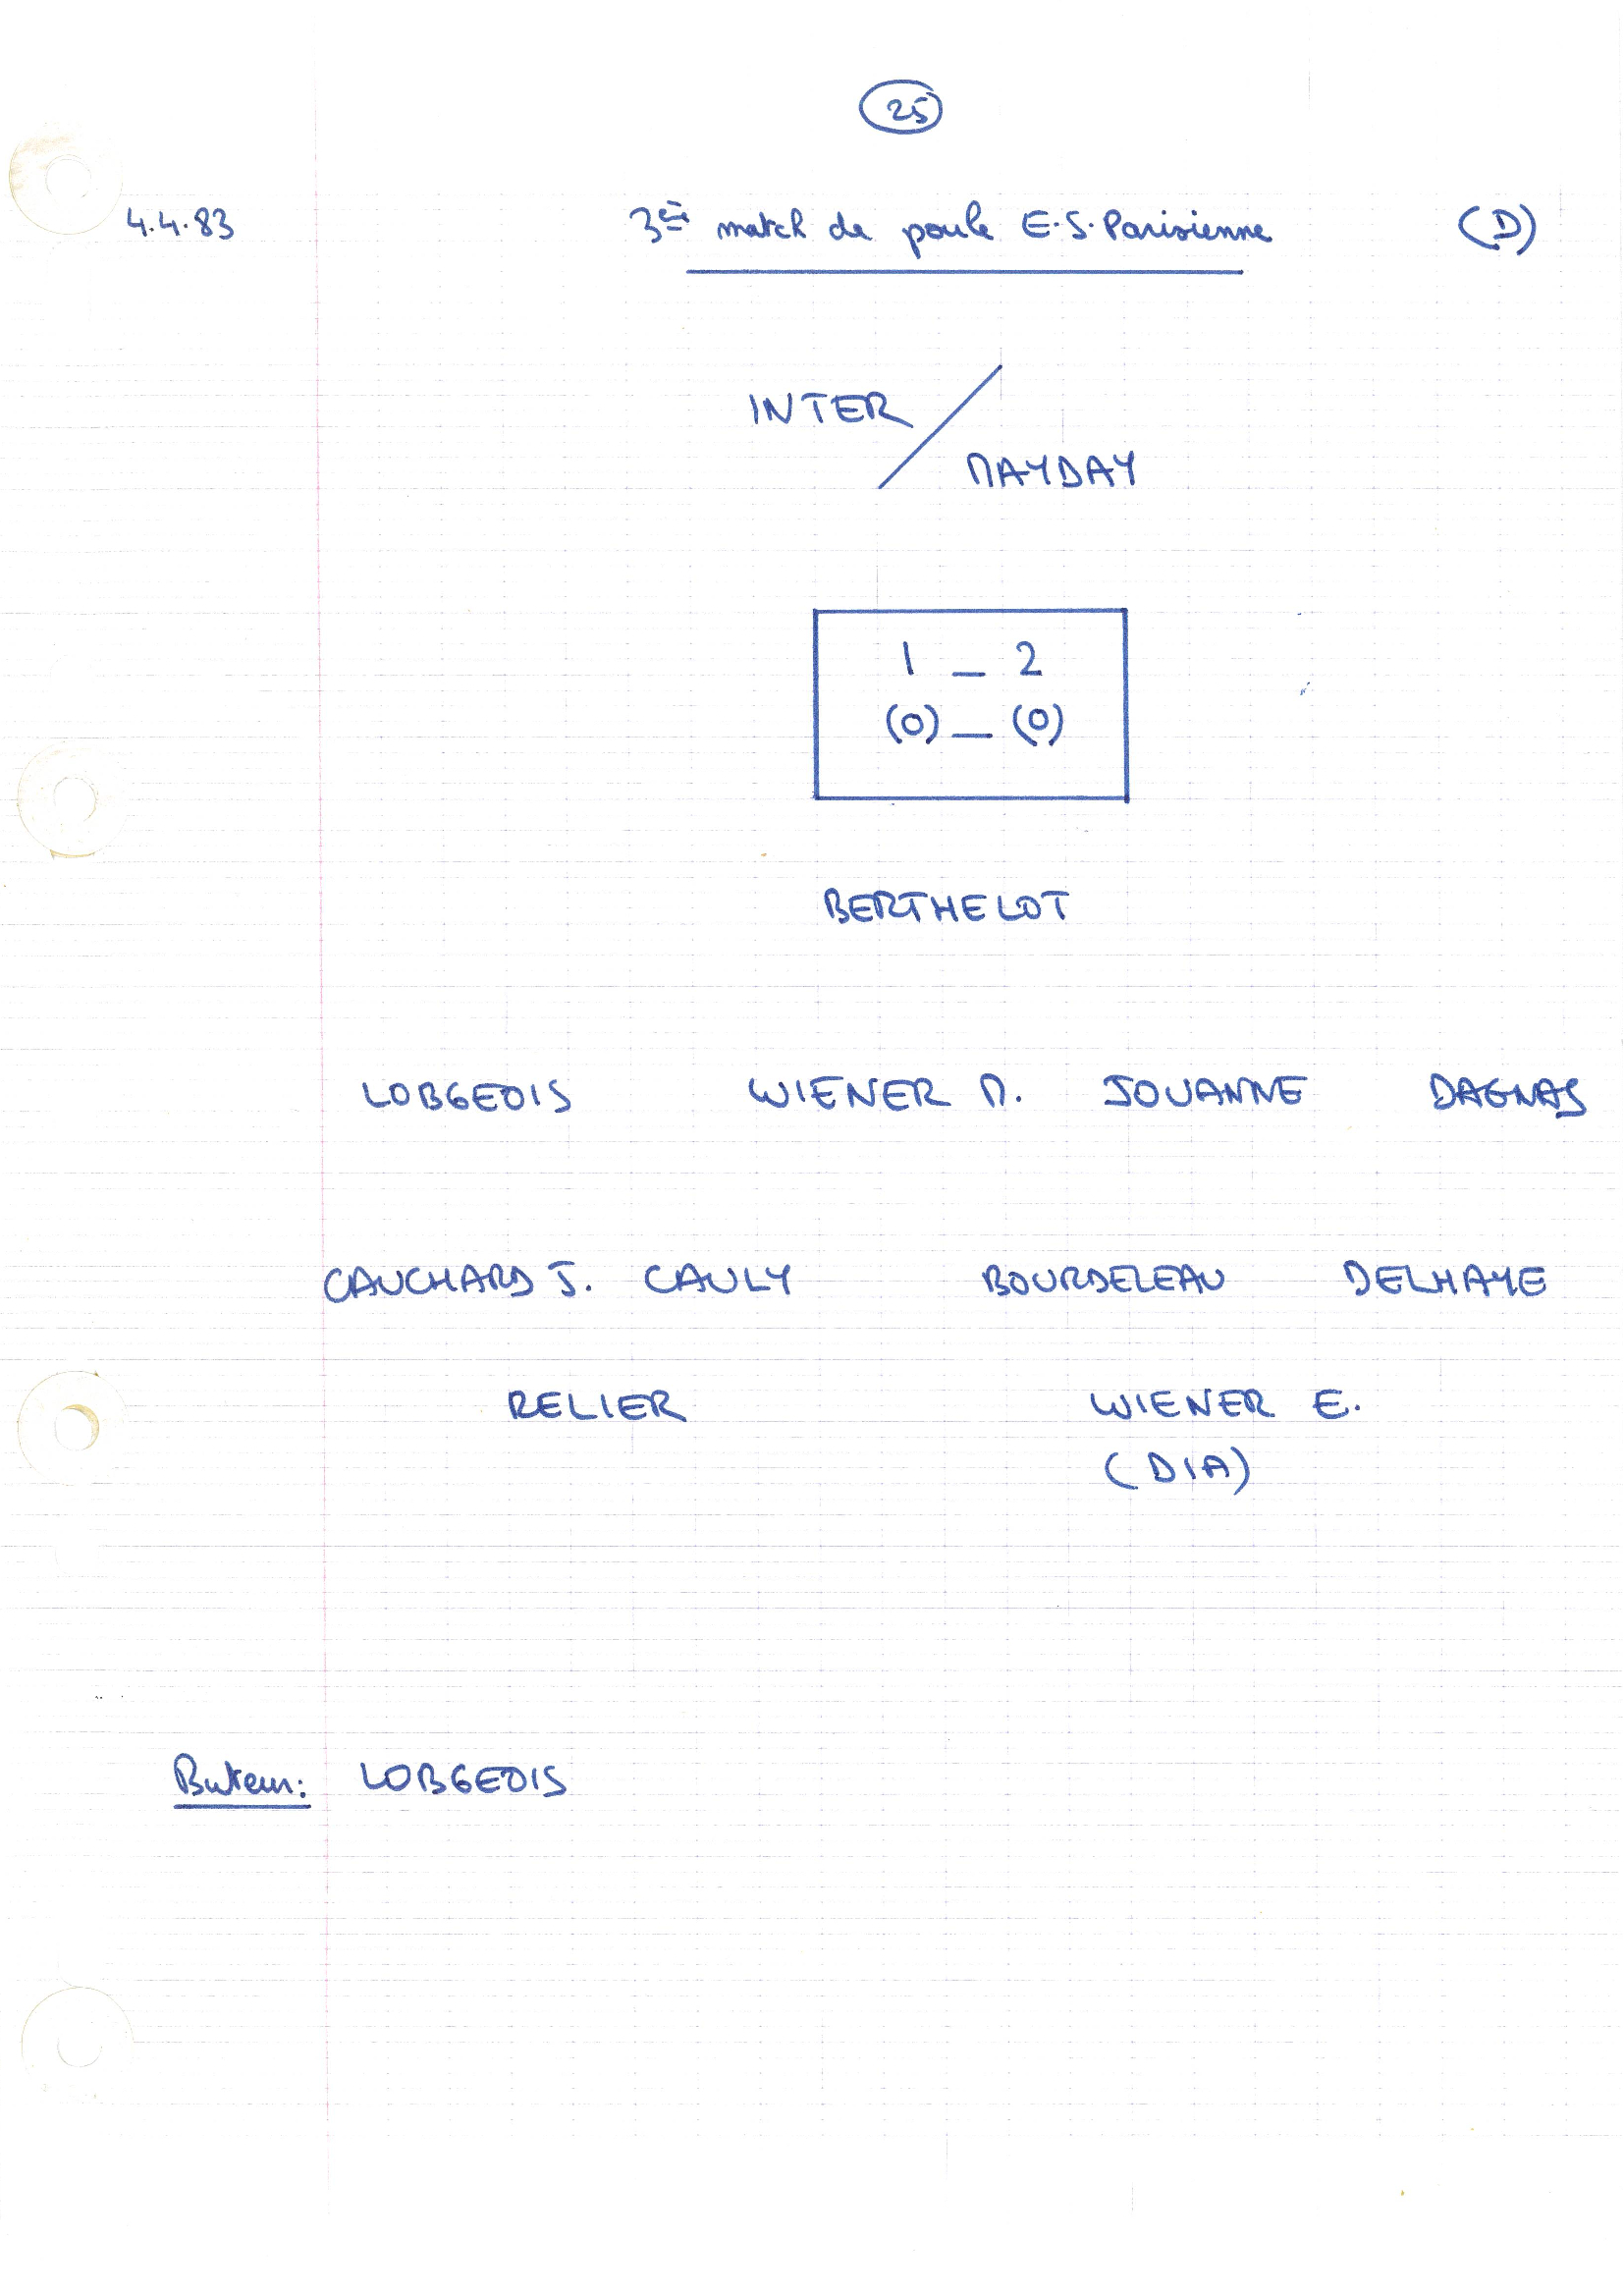 25
4.4.83 3ème match de poule E.S. Parisienne (D)
INTER /
MAYDAY
1 _ 2
(0) _ (0)
BERTHELOT
LOBGEOIS WIENER M. JOUANNE DAGNAS
CAUCHARD J. CAULY BOURDELEAU DELHAYE
RELIER WIENER E.
(DIA)
Buteur: LOBGEOIS